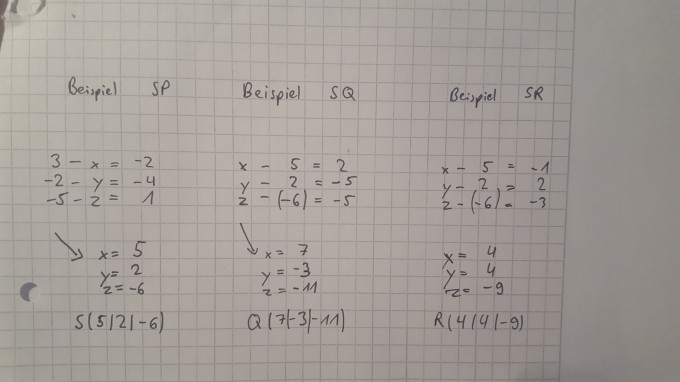 Beispiel SP
3 - x = -2
-2 - y = -4
-5 - z = 1
x = 5
y = 2
z = -6
S(5|2|-6)
Beispiel SQ
x - 5 = 2
y - 2 = -5
z - (-6) = -5
x = 7
y = -3
z = -11
Q(7|-3|-11)
Beispiel SR
x - 5 = -1
y - 2 = 2
z - (-6) = -3
x = 4
y = 4
z = -9
R(4|4|-9)